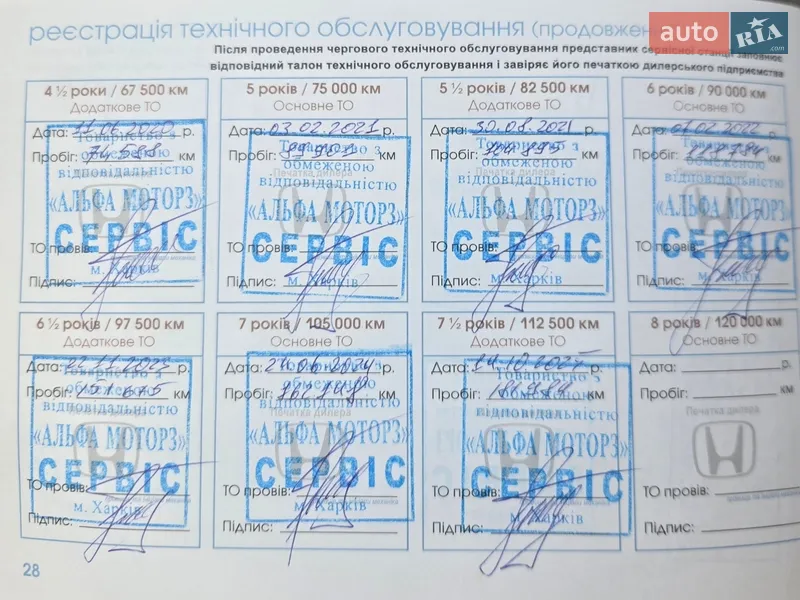 реєстрація технічного обслуговування (продовжен
auto RIA .com
Після проведення чергового технічного обслуговування представник сервісної станції заповнює
відповідний талон технічного обслуговування і завіряє його печаткою дилерського підприємства
4 ½ роки / 67 500 км
Додаткове ТО
Дата: 11.06.2020 р.
Пробіг: км
Товариство з
обмеженою
відповідальністю
«АЛЬФА МОТОРЗ»
СЕРВІС
ТО провів:
м. Харків
Підпис:
5 років / 75 000 км
Основне ТО
Дата: 03.02.2021 р.
Пробіг: км
Товариство з
обмеженою
Печатка дилера
відповідальністю
«АЛЬФА МОТОРЗ»
СЕРВІС
ТО провів:
м. Харків
Підпис:
5 ½ років / 82 500 км
Додаткове ТО
Дата: 30.08.2021 р.
Пробіг: км
Товариство з
обмеженою
відповідальністю
«АЛЬФА МОТОРЗ»
СЕРВІС
ТО провів:
м. Харків
Підпис:
6 років / 90 000 км
Основне ТО
Дата: 01.02.2022 р.
Пробіг: км
Товариство з
обмеженою
Печатка дилера
відповідальністю
«АЛЬФА МОТОРЗ»
СЕРВІС
ТО провів:
м. Харків
Підпис:
6 ½ років / 97 500 км
Додаткове ТО
Дата: 22.11.2023 р.
Пробіг: 151675 км
Товариство з
обмеженою
відповідальністю
«АЛЬФА МОТОРЗ»
СЕРВІС
ТО провів:
м. Харків
Підпис:
7 років / 105 000 км
Основне ТО
Дата: 24.06.2024 р.
Пробіг: км
Товариство з
обмеженою
Печатка дилера
відповідальністю
«АЛЬФА МОТОРЗ»
СЕРВІС
ТО провів:
м. Харків
Підпис:
7 ½ років / 112 500 км
Додаткове ТО
Дата: р.
Пробіг: км
Товариство з
обмеженою
відповідальністю
«АЛЬФА МОТОРЗ»
СЕРВІС
ТО провів:
м. Харків
Підпис:
8 років / 120 000 км
Основне ТО
Дата: р.
Пробіг: км
Печатка дилера
ТО провів:
Підпис:
28